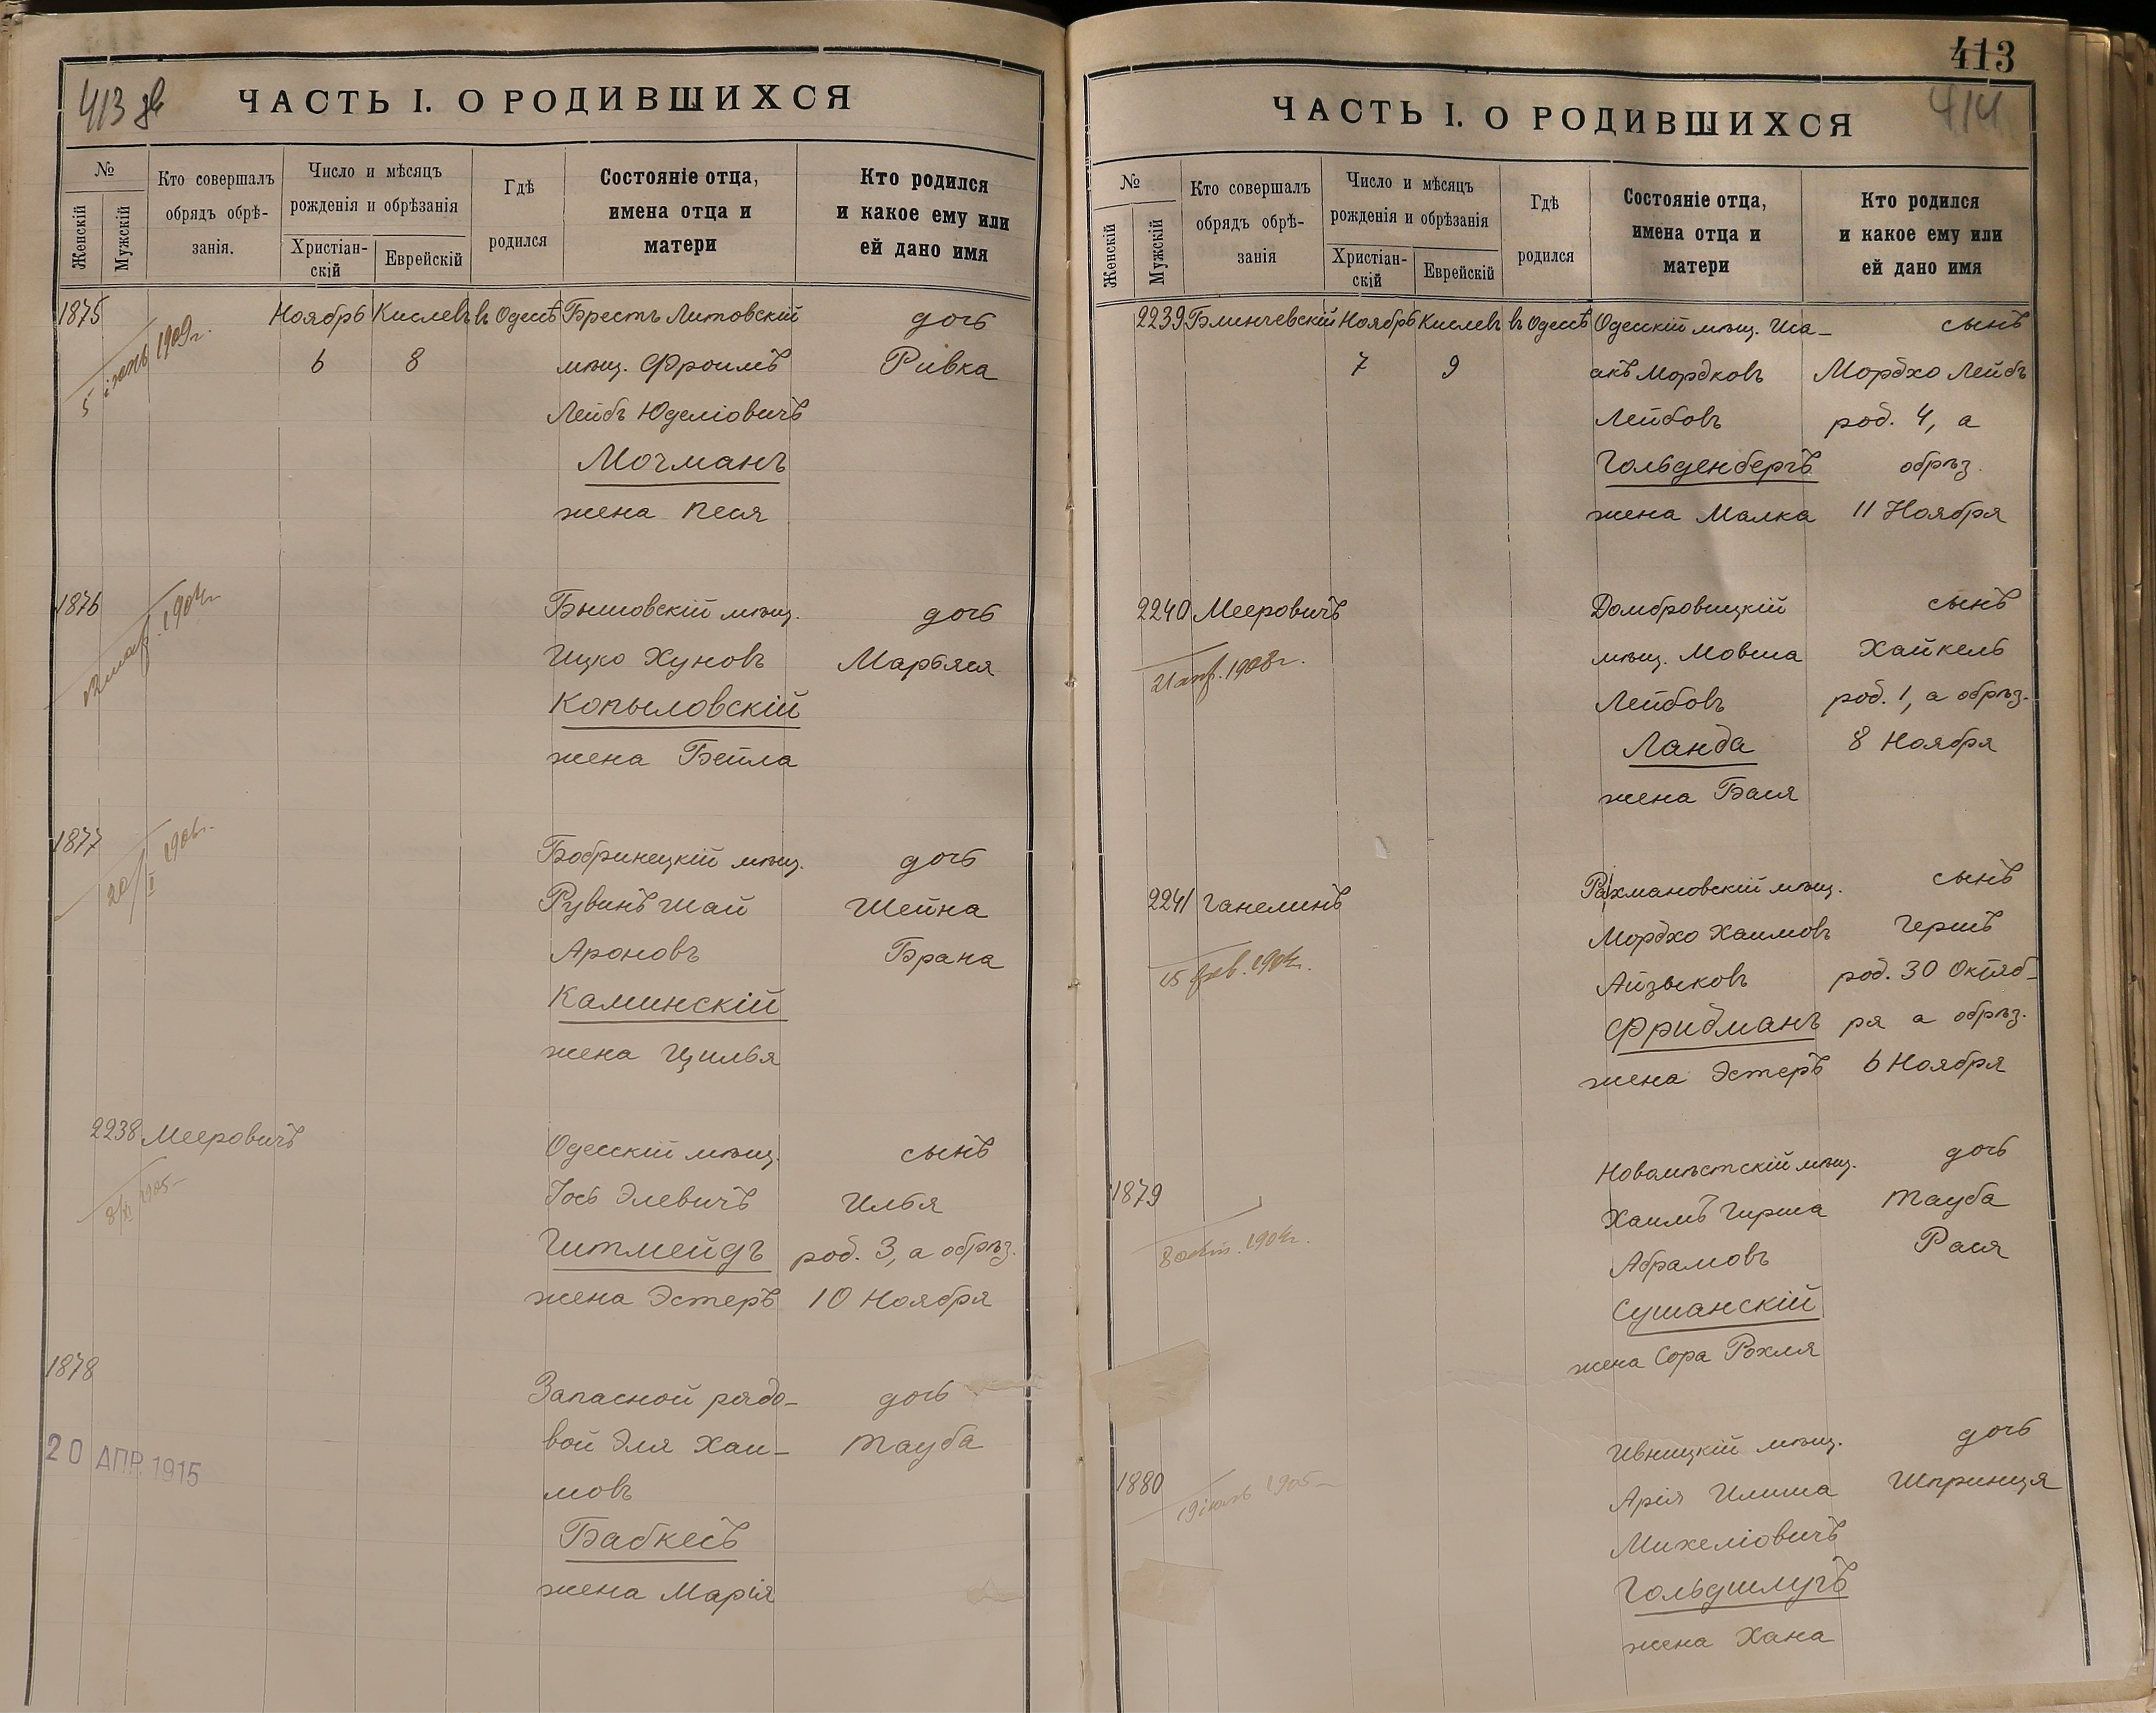 413 
ЧАСТЬ I. О РОДИВШИХСЯ
№
Женскій
Мужскій
Кто совершалъ
обрядъ обрѣ-
занія.
Число и мѣсяцъ
рожденія и обрѣзанія
Христіан-
скій
Еврейскій
Гдѣ
родился
Состояніе отца,
имена отца и
матери
Кто родился
и какое ему или
ей дано имя
1875 Ноябрь Кислевъ въ Одессѣ Брестъ Литовскій дочь
5 іюнь 1909г.
6 8 мѣщ. Фроимъ Ривка
Лейбъ Юделіовичъ
Мочманъ
жена Песя
1876 Бышовскій мѣщ. дочь
1904г.
Ицко Хуновъ Марьяся
Копыловскій
жена Бейла
1877 Бобринецкій мѣщ. дочь
20/II 1906г.
Рувинъ Шай Шейна
Ароновъ Брана
Каминскій
жена Цилья
2238 Мееровичъ Одесскій мѣщ. сынъ
8/XI 1905
Іось Элевичъ Илья
Гитмейдъ род. 3, а обрѣз.
жена Эстеръ 10 Ноября
1878 Запасной рядо-
дочь
вой Эля Хаи- Тауба
20 АПР. 1915
мовъ
Бабкесъ
жена Марія
413
414
ЧАСТЬ I. О РОДИВШИХСЯ
№
Женскій
Мужскій
Кто совершалъ
обрядъ обрѣ-
занія
Число и мѣсяцъ
рожденія и обрѣзанія
Христіан-
скій
Еврейскій
Гдѣ
родился
Состояніе отца,
имена отца и
матери
Кто родился
и какое ему или
ей дано имя
2239 Блинчевскій Ноябрь Кислевъ въ Одессѣ Одесскій мѣщ. Иса- сынъ
7 9 акъ Мордковъ Мордхо Лейбъ
Лейбовъ род. 4, а
Гольденбергъ обрѣз.
жена Малка 11 Ноября
2240 Мееровичъ Домбровицкій сынъ
21 апр. 1908г. мѣщ. Мовша Хайкель
Лейбовъ род. 1, а обрѣз.
Ланда 8 Ноября
жена Бася
2241 Ганелинъ Рахмановскій мѣщ. сынъ
Мордхо Хаимовъ Гершъ
15 фев. 1904г. Айзыковъ род. 30 Октяб-
Фридманъ ря а обрѣз.
жена Эстеръ 6 Ноября
1879 Новомѣстскій мѣщ. дочь
Хаимъ Гирша Тауба
8 окт. 1904г. Абрамовъ Рася
Сушанскій
жена Сора Рохля
1880 Ивницкій мѣщ. дочь
19 1905 Арія Илиша Шпринця
Михеліовичъ
Гольдшлугъ
жена Хана